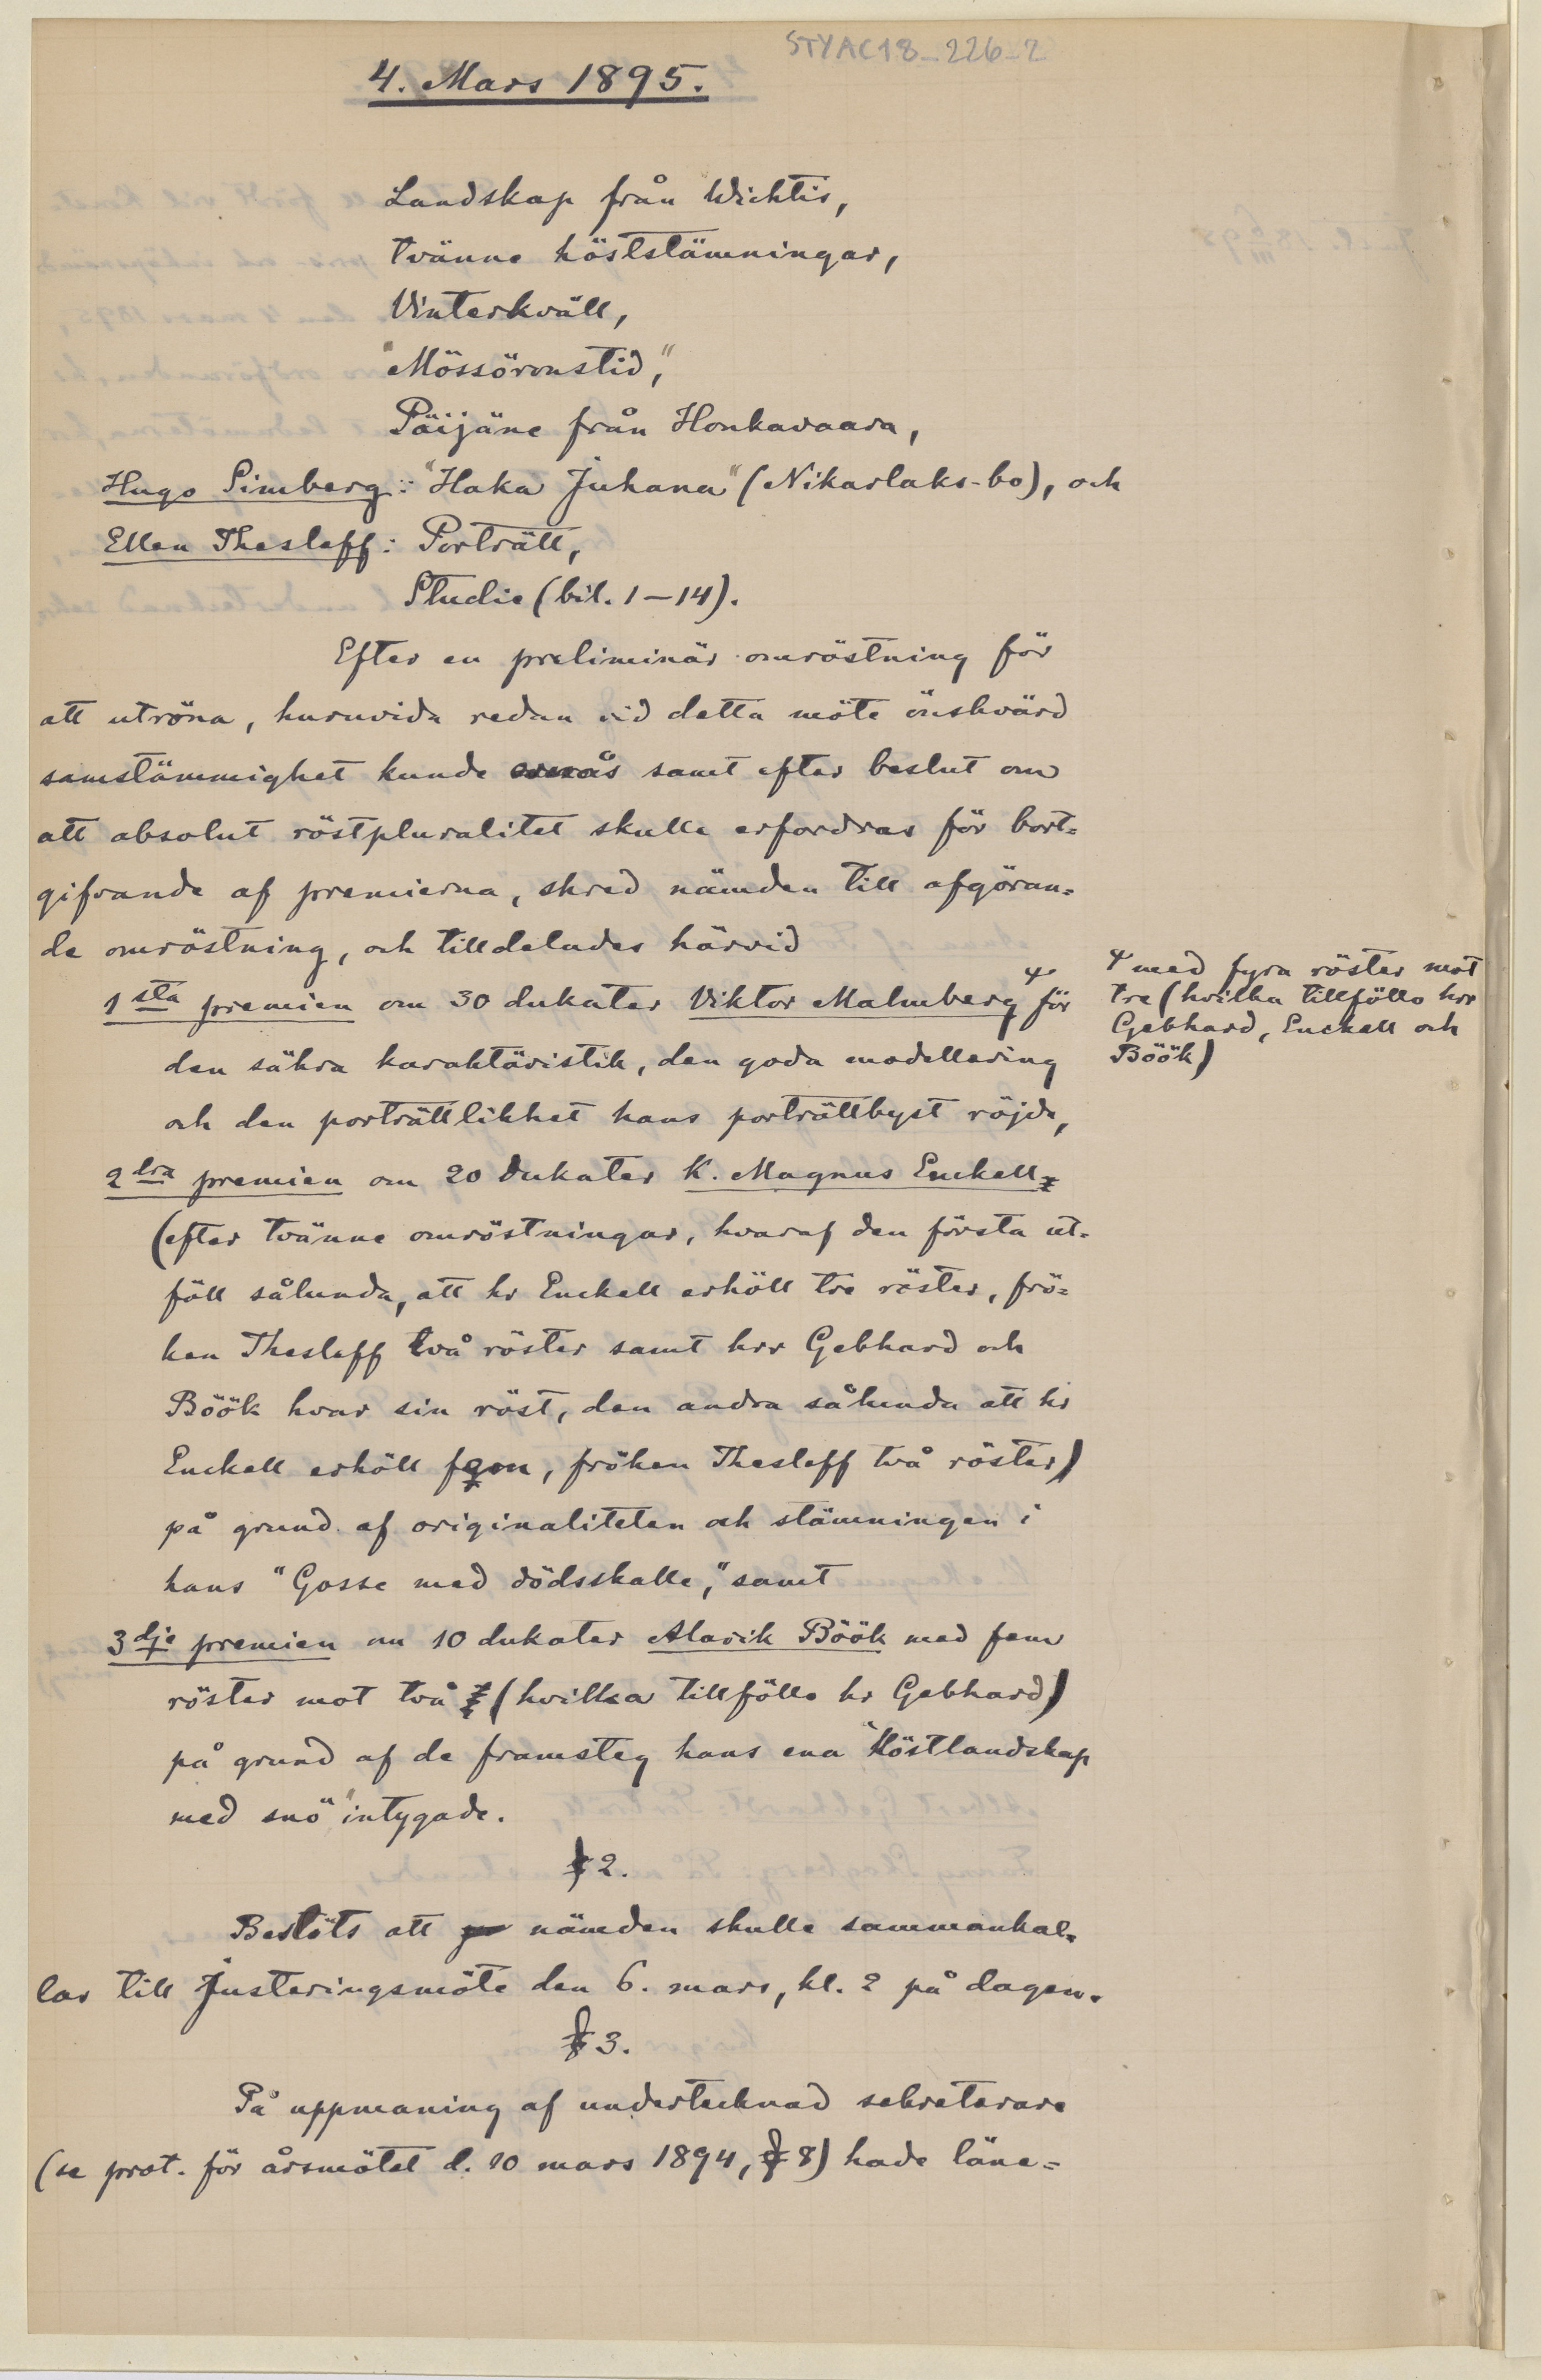 STYAC18_226_2
4. Mars 1895.
Landskap från Wichtis,
tvänne höststämningar,
Vinterkväll,
"Mössöronstid",
Päijäne från Honkavaara,
Hugo Simberg: "Haka Juhana" (Nikarlaks-bo), och
Ellen Thesleff: Porträtt,
Studie (bil. 1–14).
Efter en preliminär omröstning för
att utröna, huruvida redan vid detta möte önskvärd
samstämmighet kunde samt efter beslut om
att absolut röstpluralitet skulle erfordras för bort-
gifvande af premierna, skred nämden till afgöran-
de omröstning, och tilldelades härvid
1sta premien om 30 dukater Viktor Malmberg + för
+ med fyra röster mot
tre (hvilka tillföllo hrr
Gebhard, Enckell och
Böök)
den säkra karaktäristik, den goda modellering
och den porträttlikhet hans porträttbyst röjde,
2dra premien om 20 dukater K. Magnus Enckell
(efter tvänne omröstningar, hvaraf den första ut-
föll sålunda, att hr Enckell erhöll tre röster, frö-
ken Thesleff två röster samt hrr Gebhard och
Böök hvar sin röst, den andra sålunda att hr
Enckell erhöll fem, fröken Thesleff två röster)
på grund af originaliteten och stämningen i
hans "Gosse med dödskalle", samt
3dje premien om 10 dukater Alarik Böök med fem
röster mot två (hvilka tillföllo hr Gebhard)
på grund af de framsteg hans ena "Höstlandskap
med snö" intygade.
§ 2.
Beslöts att nämden skulle sammankal-
las till justeringsmöte den 6. mars, kl. 2 på dagen.
§ 3.
På uppmaning af undertecknad sekreterare
(se prot. för årsmötet d. 10 mars 1894, § 8) hade läne-